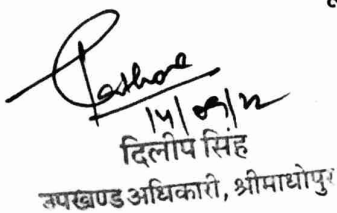 14/09/22
दिलीप सिंह
उपखण्ड अधिकारी, श्रीमाधोपुर